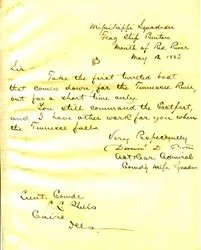 Mississippi Squadron
Flag Ship Benton
Mouth of Red River
May 1863
Sir
Take the first turreted boat
that comes down for the Tennessee River
but for a short time only.
You still command the Eastport,
and I have other work for you when
the Tennessee falls
Very Respectfully
David D.
Act Rear Admiral
Comdg Miss Squadron
Lieut. Comdr
Phelps
Cairo
Ills